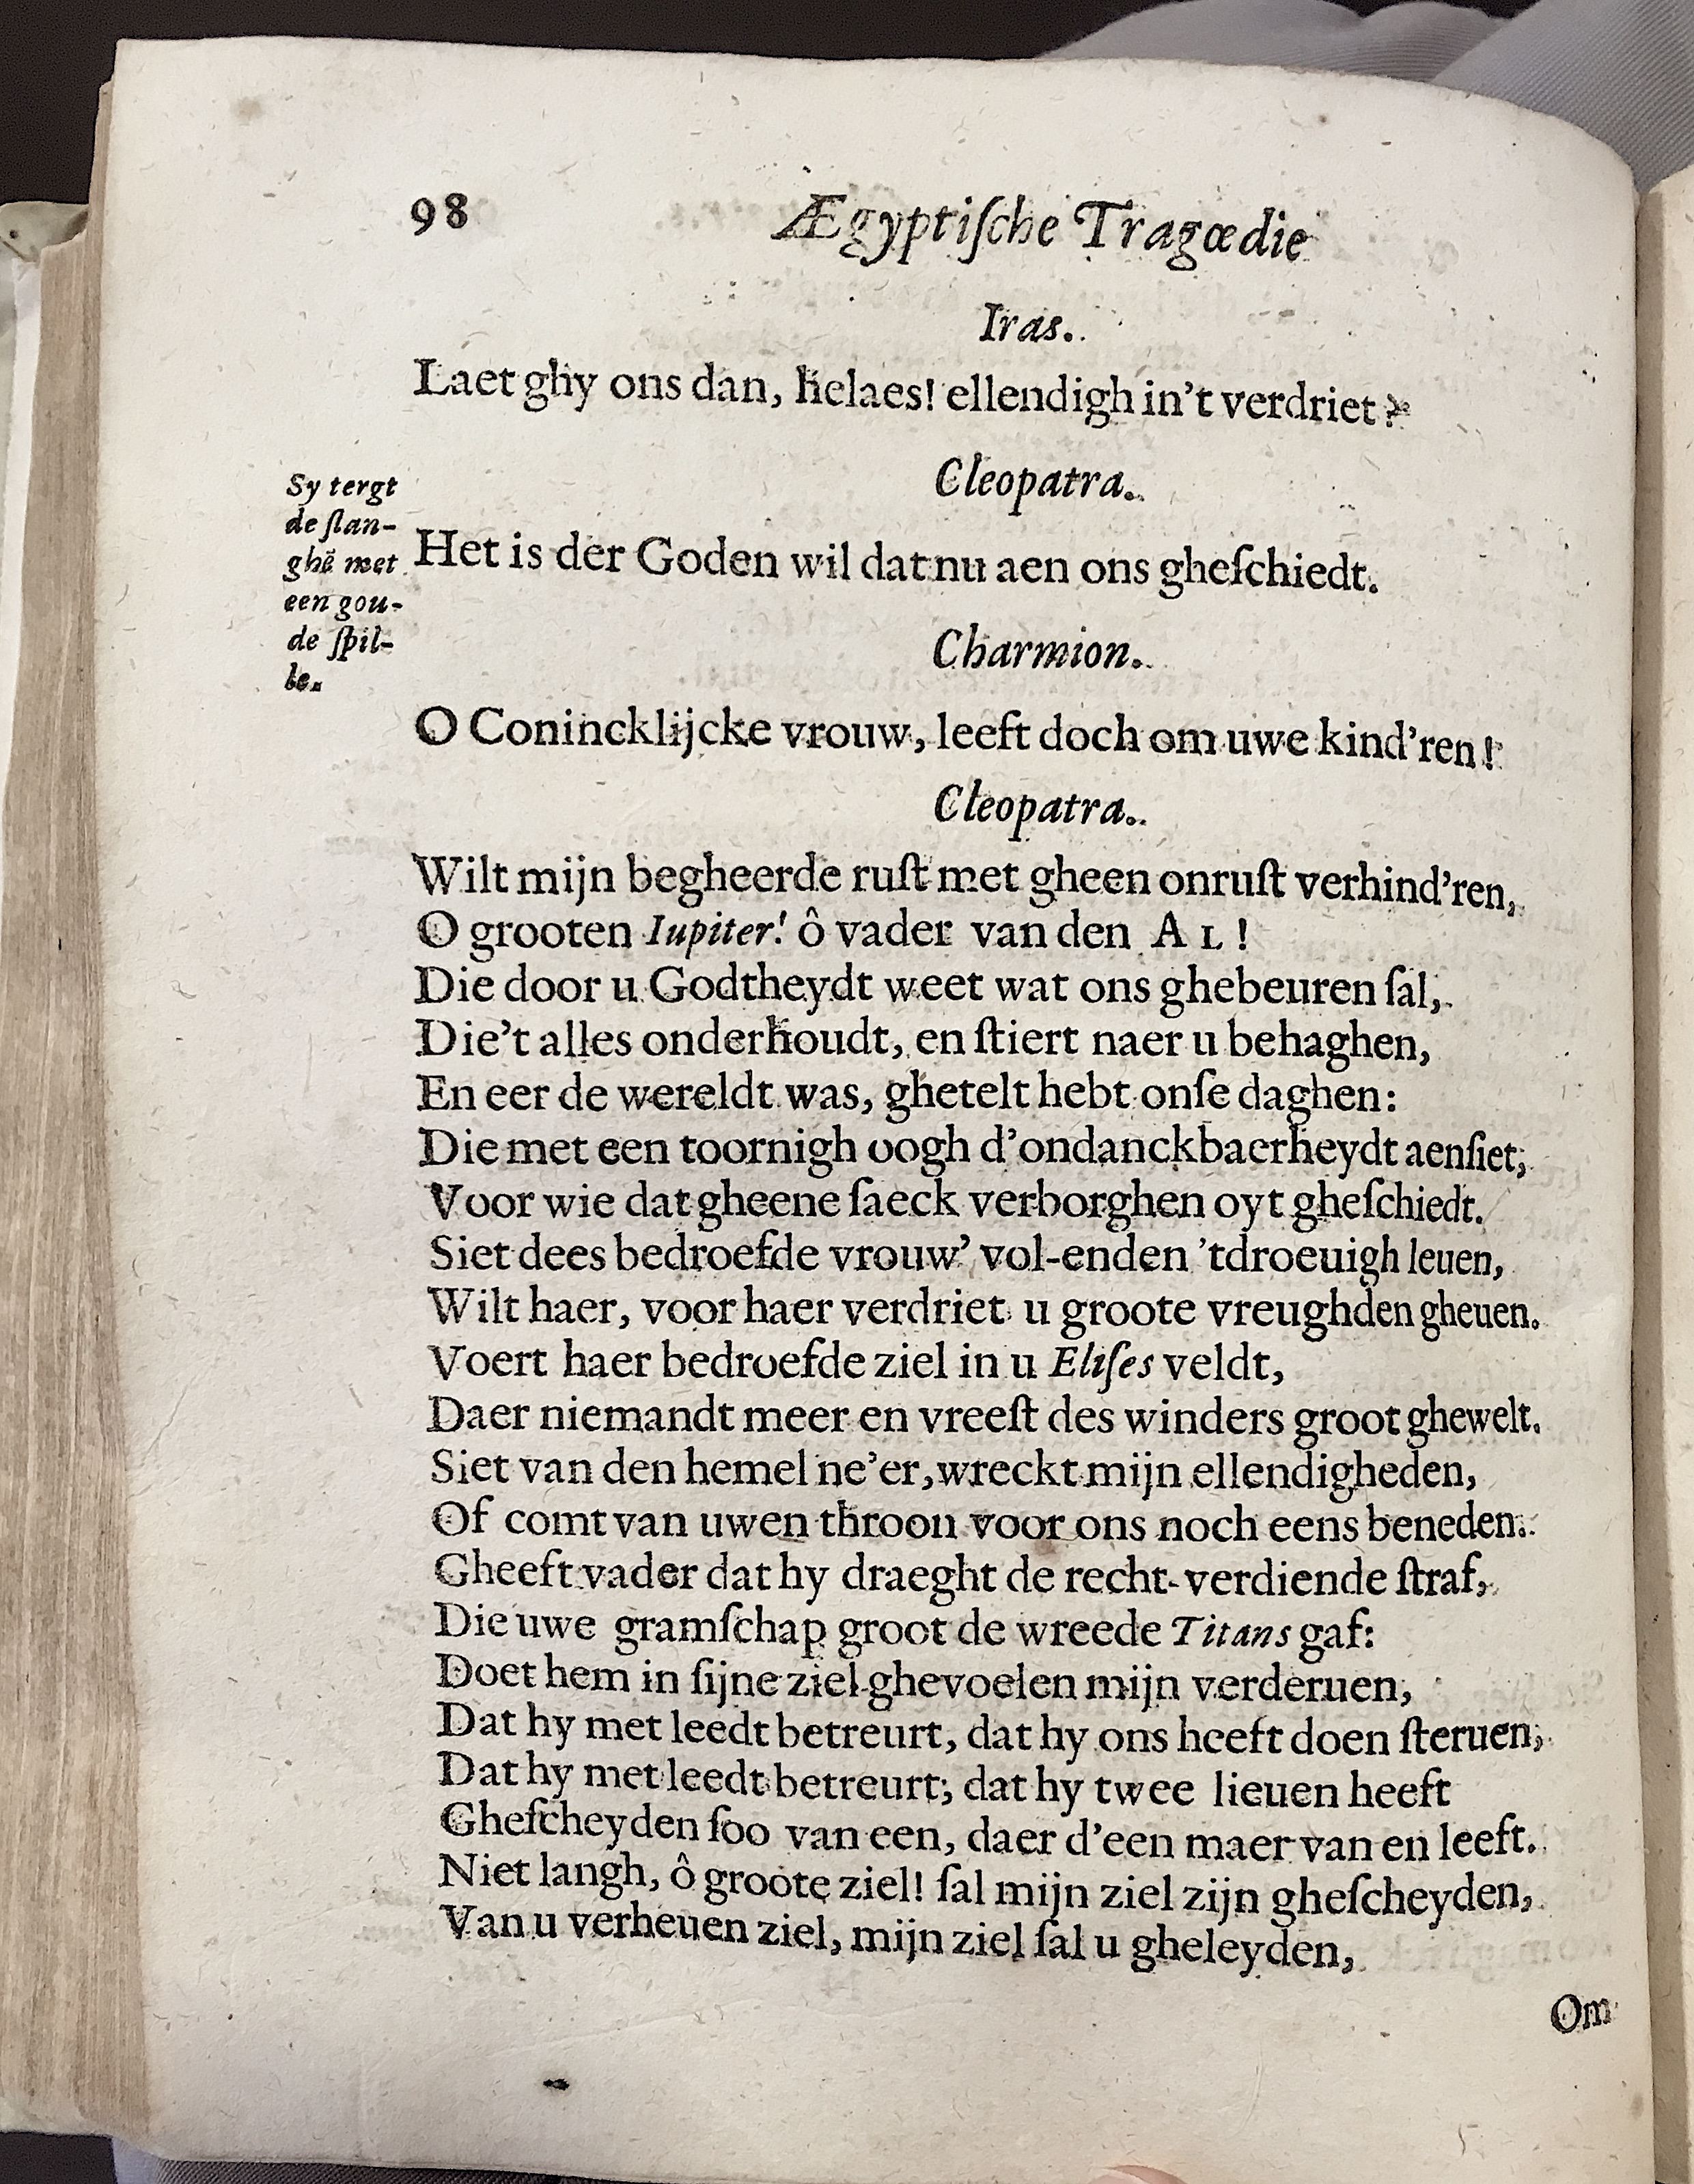 98
Ægyptiſche Tragœdie
Iras.
Laet ghy ons dan, helaes! ellendigh in't verdriet?
Cleopatra.
Sy tergt
de ſlan-
ghē met
een gou-
de ſpil-
le.
Het is der Goden wil dat nu aen ons gheſchiedt.
Charmion.
O Conincklijcke vrouw, leeft doch om uwe kind'ren!
Cleopatra.
Wilt mijn begheerde ruſt met gheen onruſt verhind'ren,
O grooten Iupiter! ô vader van den AL!
Die door u Godtheydt weet wat ons ghebeuren ſal,
Die't alles onderhoudt, en ſtiert naer u behaghen,
En eer de wereldt was, ghetelt hebt onſe daghen:
Die met een toornigh oogh d'ondanckbaerheydt aenſiet,
Voor wie dat gheene ſaeck verborghen oyt gheſchiedt.
Siet dees bedroefde vrouw' vol-enden 'tdroeuigh leuen,
Wilt haer, voor haer verdriet u groote vreughden gheuen.
Voert haer bedroefde ziel in u Eliſes veldt,
Daer niemandt meer en vreeſt des winders groot ghewelt.
Siet van den hemel ne'er, wreckt mijn ellendigheden,
Of comt van uwen throon voor ons noch eens beneden.
Gheeft vader dat hy draeght de recht-verdiende ſtraf,
Die uwe gramſchap groot de wreede Titans gaf:
Doet hem in ſijne ziel ghevoelen mijn verderuen,
Dat hy met leedt betreurt, dat hy ons heeft doen ſteruen,
Dat hy met leedt betreurt; dat hy twee lieuen heeft
Gheſcheyden ſoo van een, daer d'een maer van en leeft.
Niet langh, ô groote ziel! ſal mijn ziel zijn gheſcheyden,
Van u verheuen ziel, mijn ziel ſal u gheleyden,
Om